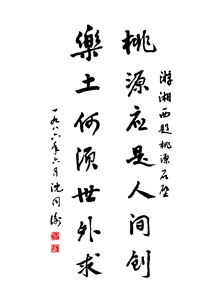 游湘西题桃源石壁
桃源应是人间创
樂土何须世外求
一九八六年六月沈同衡